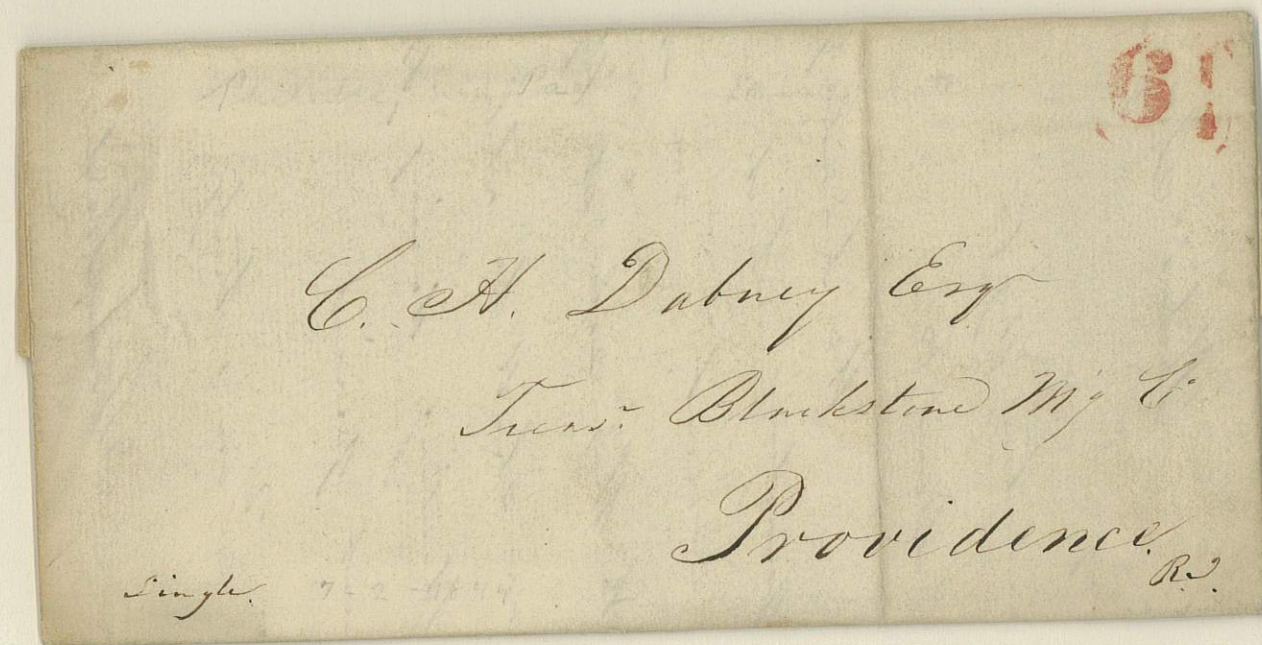 C. H. Dabney Esqr
Treasr. Blackstone Mg Co
Providence
R.I.
Single.
7-2-1844